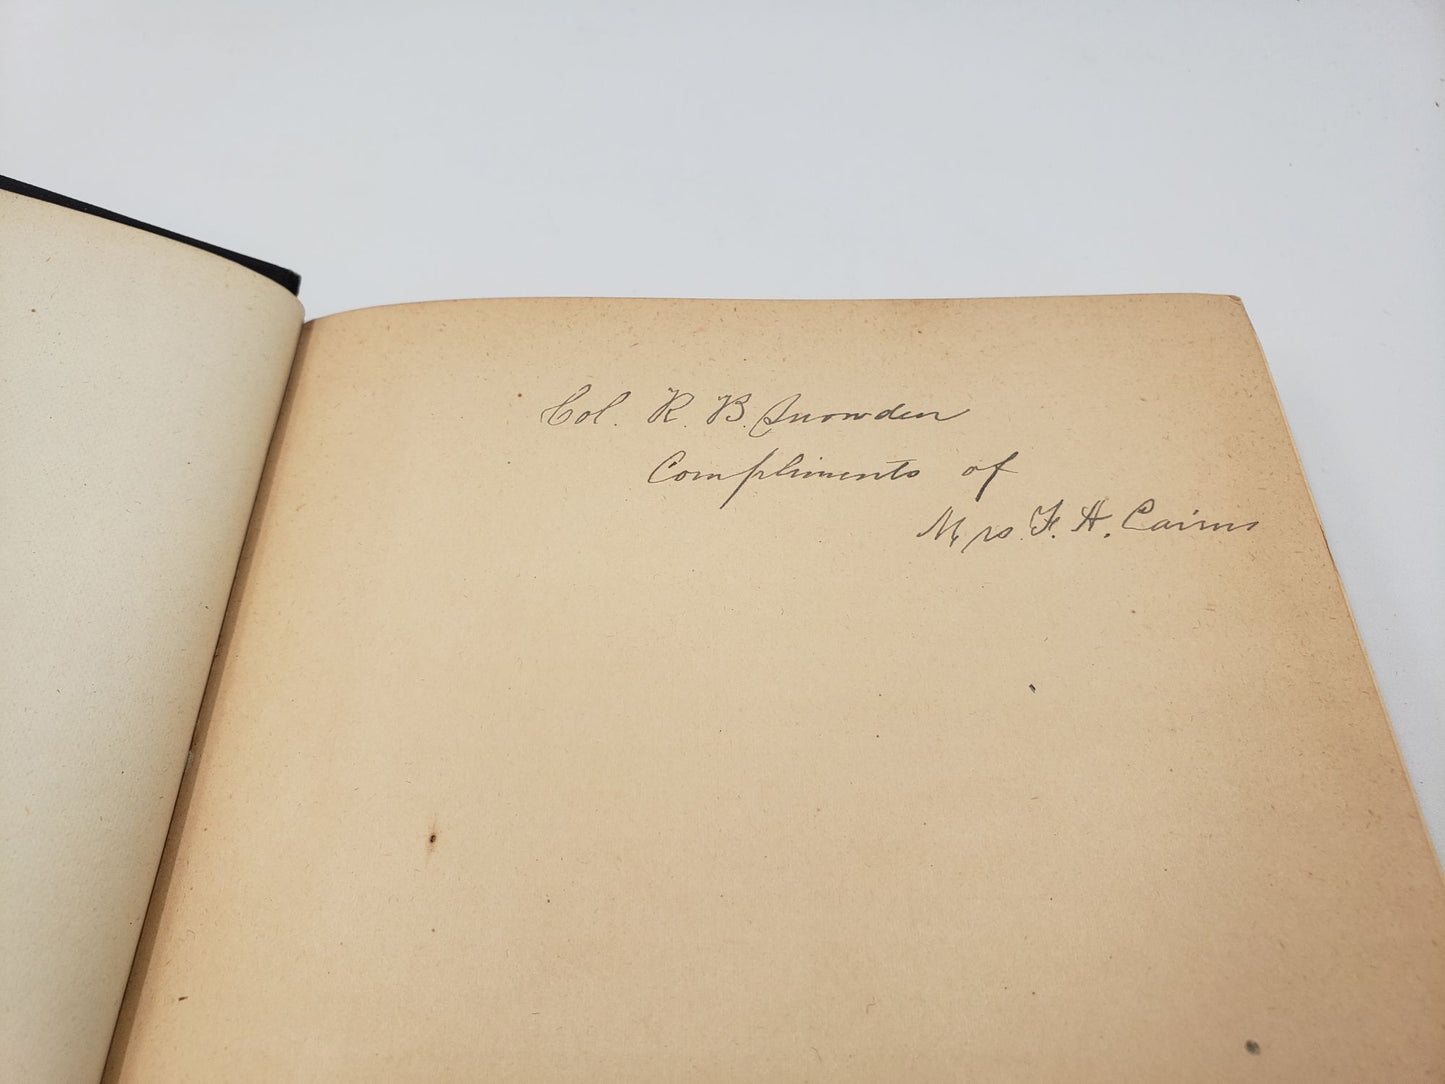 Col. R. B. Snowden
Compliments of
Mrs. F. A. Cairns